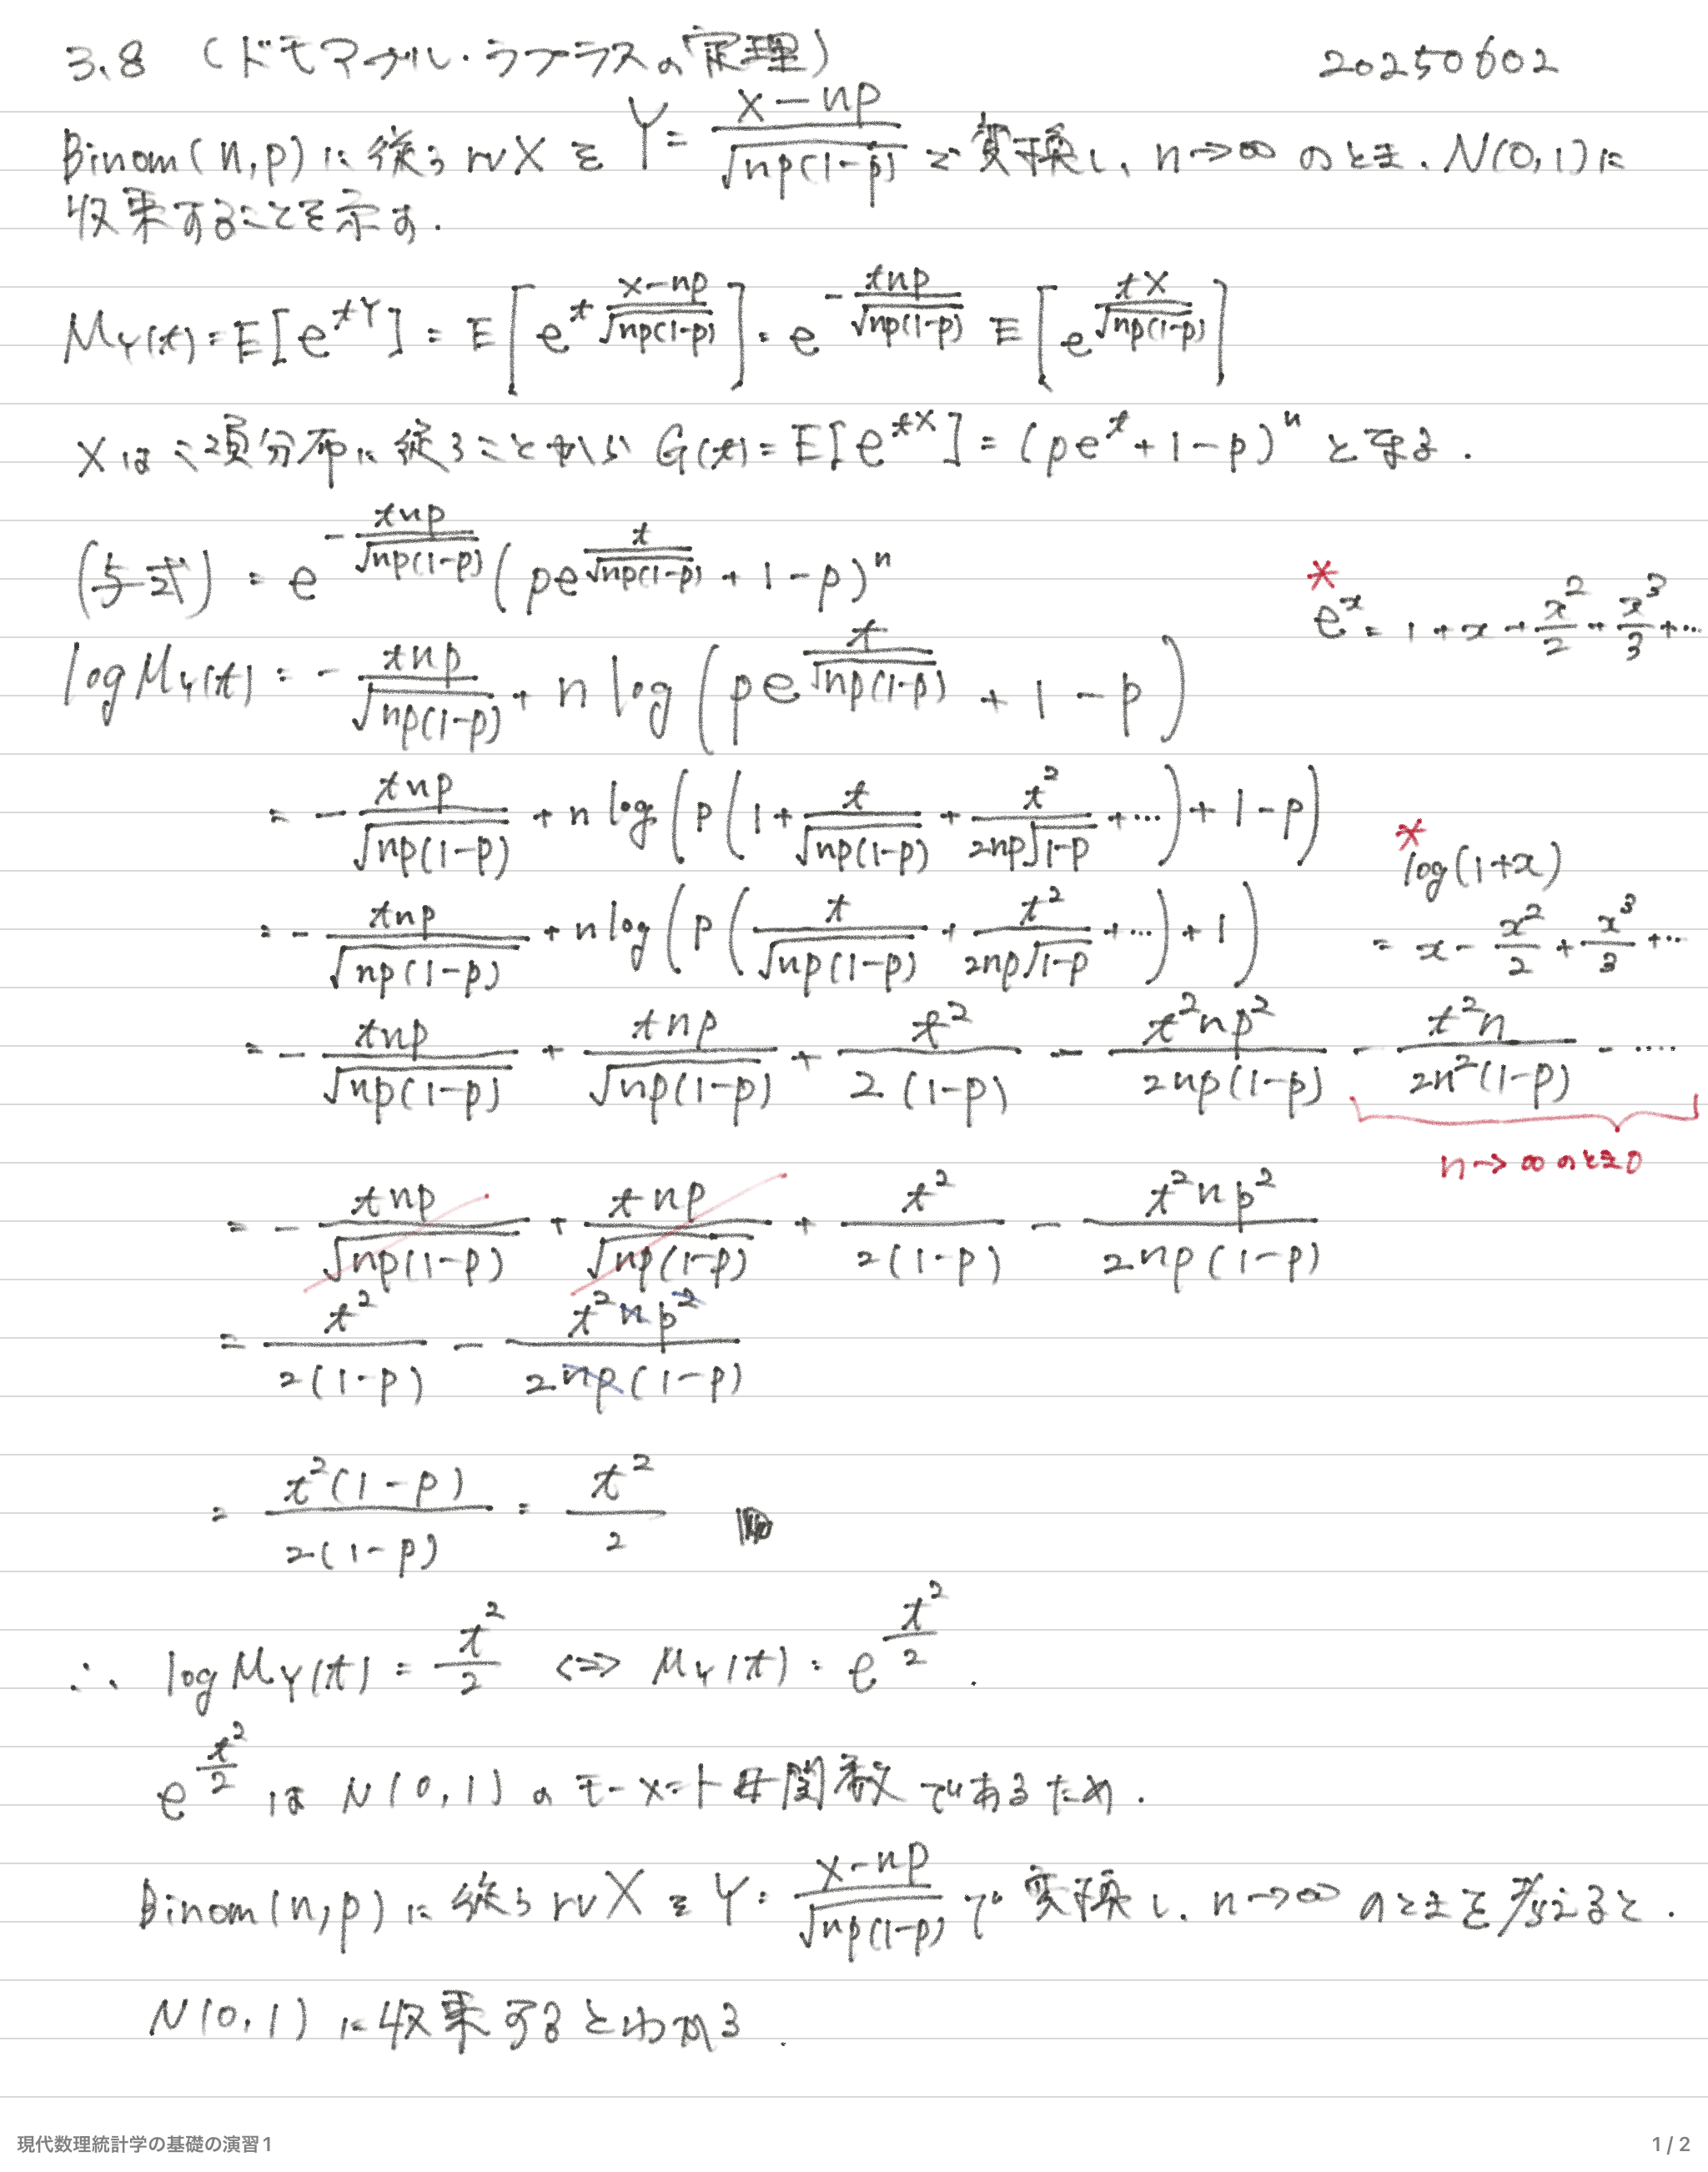 3.8 (ドモアブル・ラプラスの定理) 20250602
Binom(n,p)に従う rv X を Y = \frac{X-np}{\sqrt{np(1-p)}} で変換し、n→∞ のとき、N(0,1)に
収束することを示す.
M_Y(t) = E[e^{tY}] = E[e^{t\frac{X-np}{\sqrt{np(1-p)}}}] = e^{-\frac{tnp}{\sqrt{np(1-p)}}} E[e^{\frac{tX}{\sqrt{np(1-p)}}}]
X は二項分布に従うことから G(t) = E[e^{tX}] = (pe^t + 1 - p)^n とする.
(与式) = e^{-\frac{tnp}{\sqrt{np(1-p)}}} (pe^{\frac{t}{\sqrt{np(1-p)}}} + 1 - p)^n
* e^x = 1 + x + \frac{x^2}{2} + \frac{x^3}{3} + …
log M_Y(t) = -\frac{tnp}{\sqrt{np(1-p)}} + n log(pe^{\frac{t}{\sqrt{np(1-p)}}} + 1 - p)
= -\frac{tnp}{\sqrt{np(1-p)}} + n log(p(1 + \frac{t}{\sqrt{np(1-p)}} + \frac{t^2}{2np\sqrt{1-p}} + …) + 1 - p)
* log(1+x)
= x - \frac{x^2}{2} + \frac{x^3}{3} + …
= -\frac{tnp}{\sqrt{np(1-p)}} + n log(p(\frac{t}{\sqrt{np(1-p)}} + \frac{t^2}{2np\sqrt{1-p}} + …) + 1)
= -\frac{tnp}{\sqrt{np(1-p)}} + \frac{tnp}{\sqrt{np(1-p)}} + \frac{t^2}{2(1-p)} - \frac{t^2np^2}{2np(1-p)} - \frac{t^2n}{2n^2(1-p)} - ….
n→∞ のとき 0
= -\frac{tnp}{\sqrt{np(1-p)}} + \frac{tnp}{\sqrt{np(1-p)}} + \frac{t^2}{2(1-p)} - \frac{t^2np^2}{2np(1-p)}
= \frac{t^2}{2(1-p)} - \frac{t^2np^2}{2np(1-p)}
= \frac{t^2(1-p)}{2(1-p)} = \frac{t^2}{2}
∴ log M_Y(t) = \frac{t^2}{2} ⇔ M_Y(t) = e^{\frac{t^2}{2}}.
e^{\frac{t^2}{2}} は N(0,1) のモーメント母関数であるため.
Binom(n,p)に従う rv X を Y = \frac{X-np}{\sqrt{np(1-p)}} で変換し、n→∞ のときを考えると.
N(0,1) に収束するとわかる.
現代数理統計学の基礎の演習1
1 / 2